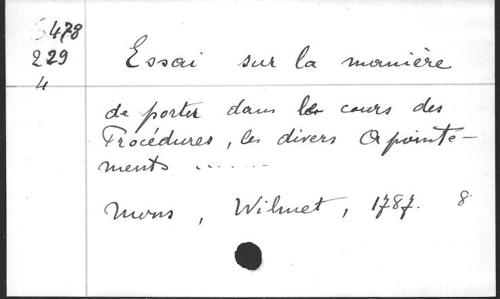 6478
229
4
Essai sur la manière
de porter dans le cours des
Procédures, les divers Apointe-
ments ......
Mons, Wilmet, 1787. 8